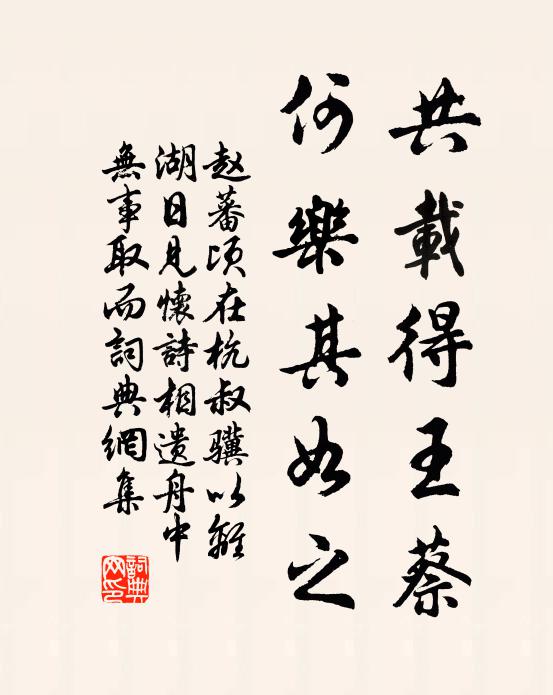 共載得王蔡
何樂其如之
赵蕃頃在杭叔骥以離
湖日見懷詩相遗舟中
無事取而詞典網集
詞典网印